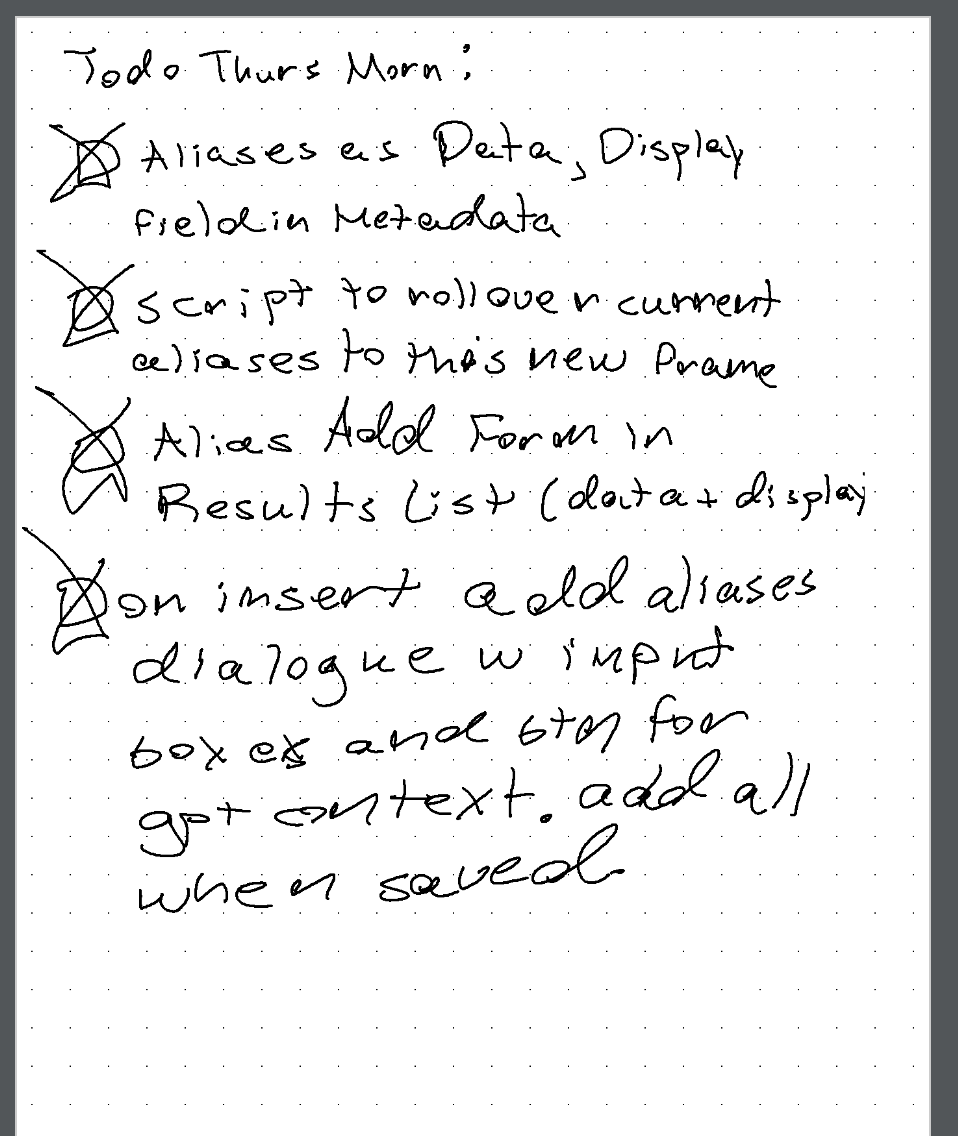 Todo Thurs Morn:
Aliases as Data, Display
field in Metadata
Script to rollover current
aliases to this new Frame
Alias Add Form in
Results List (data + display
on insert add aliases
dialogue w input
boxes and btn for
gpt context. add all
when saved